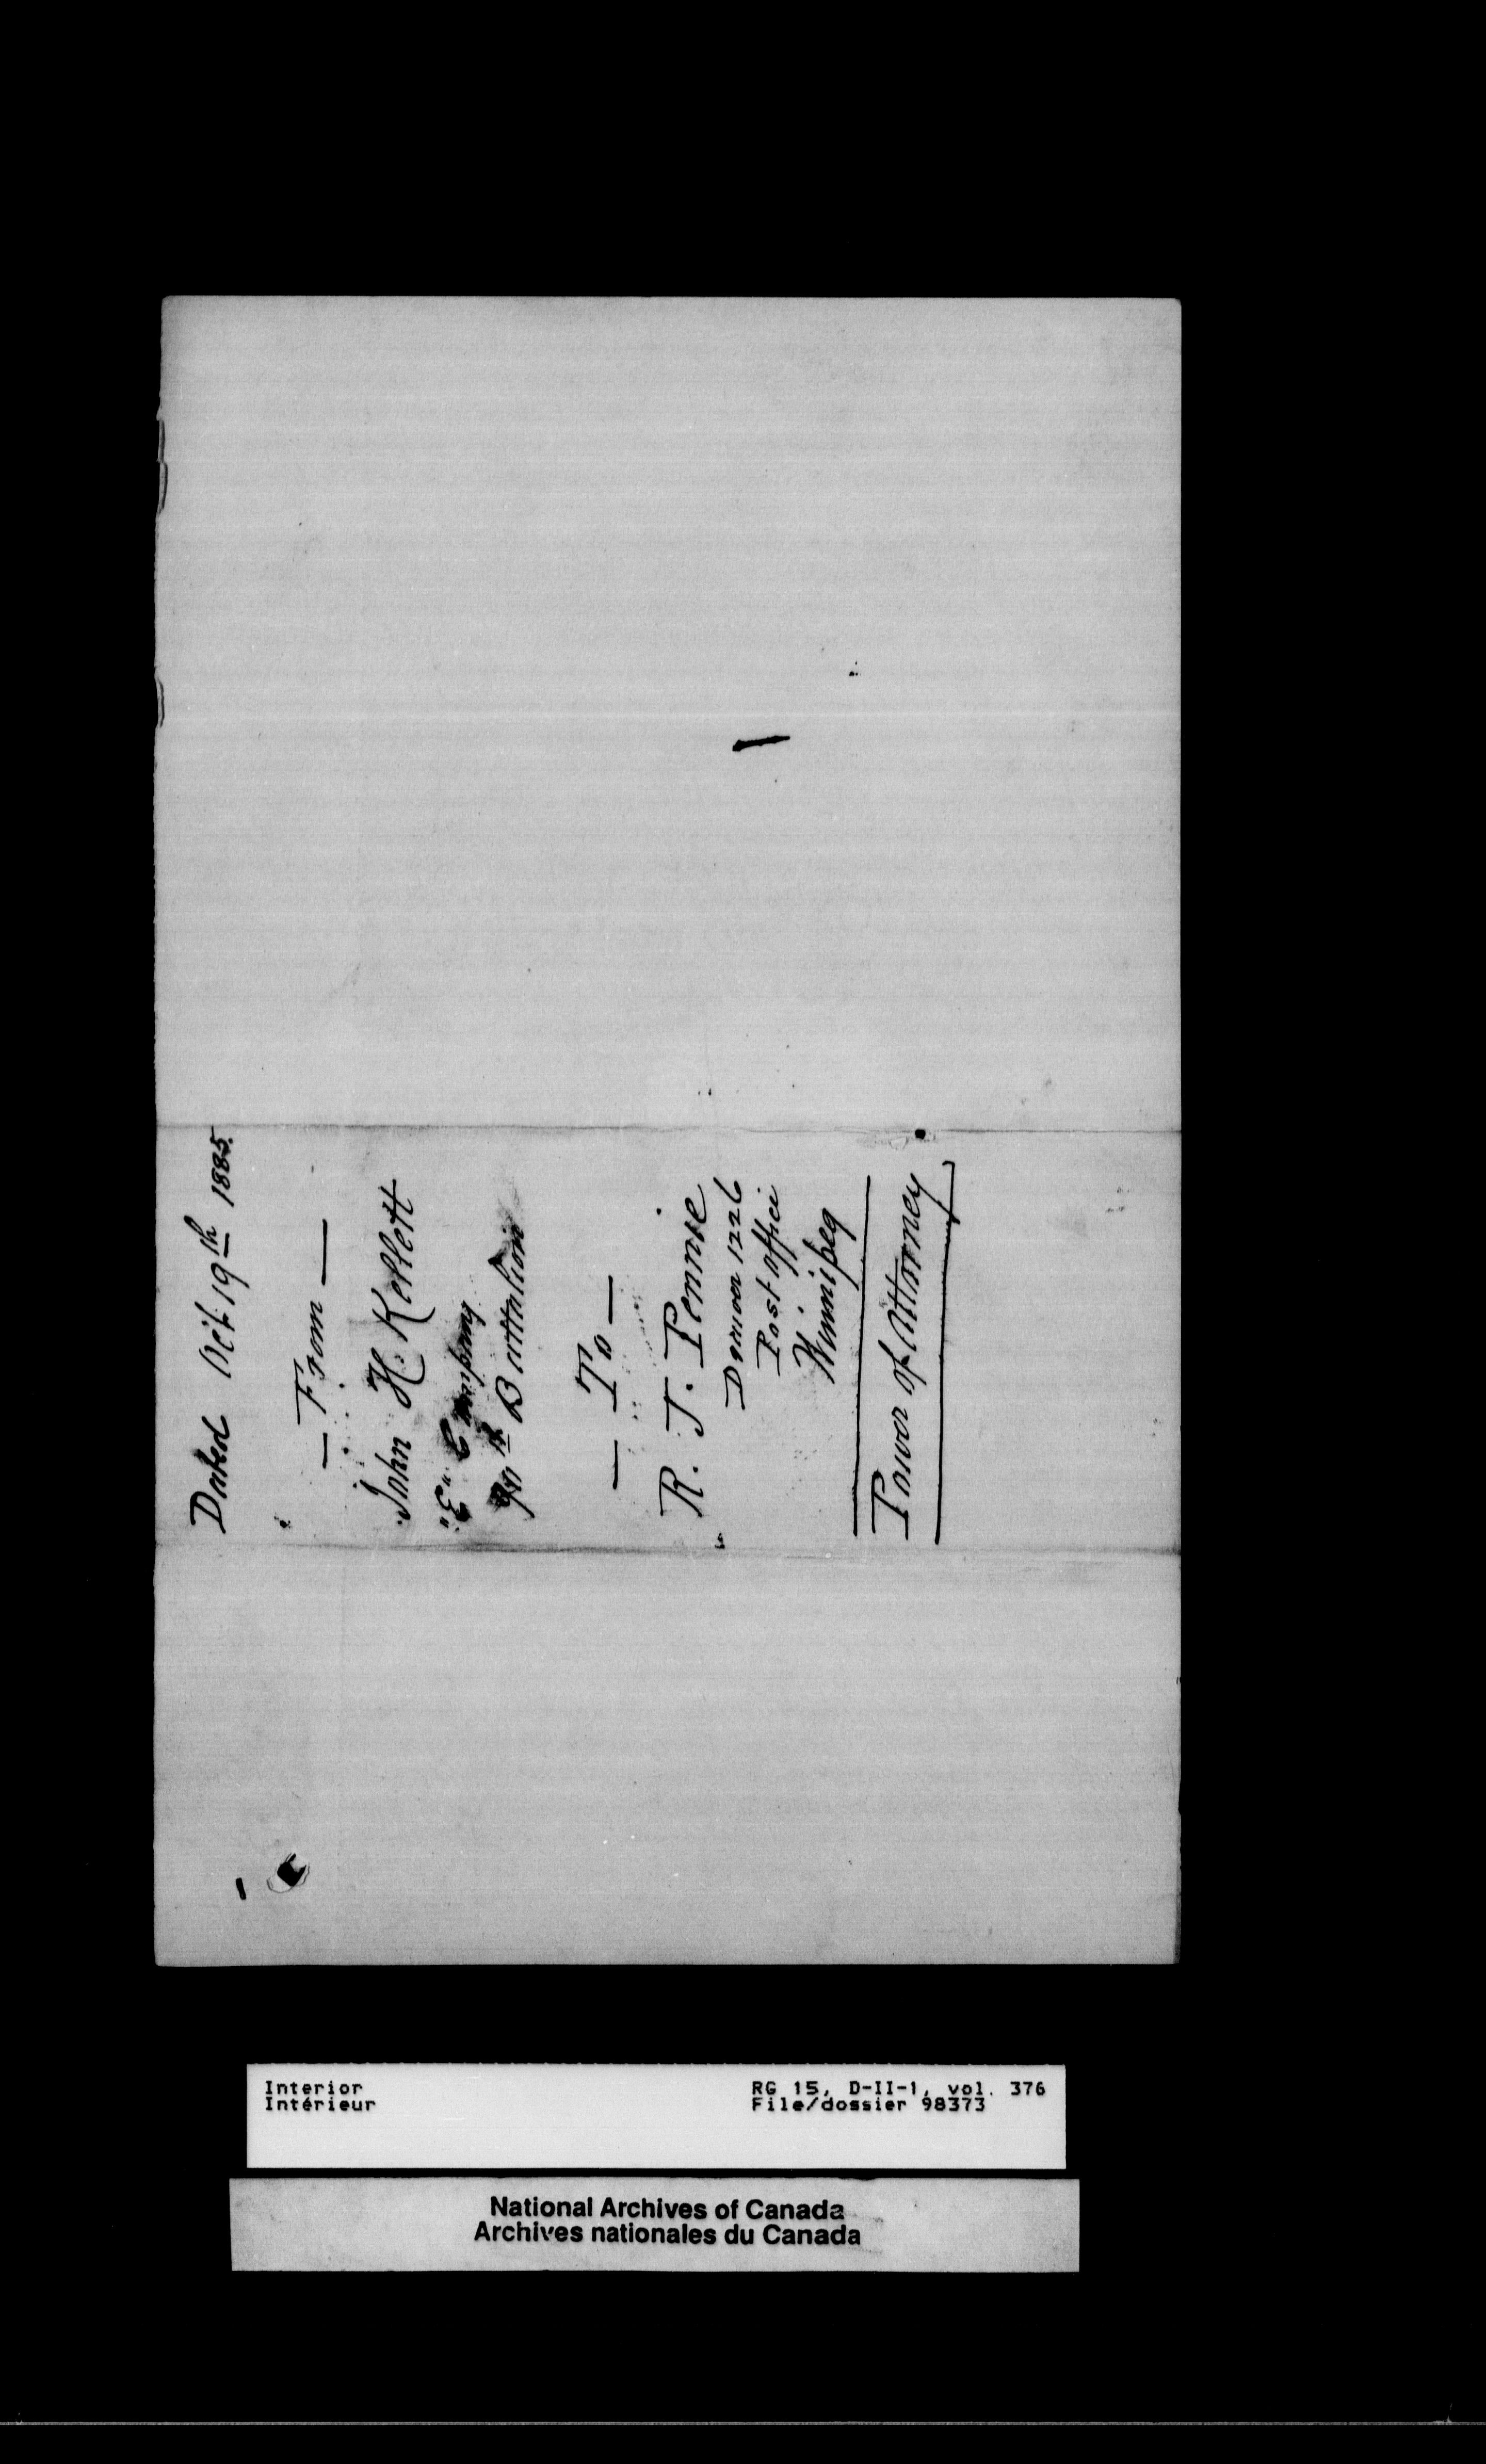 Dated Oct 19th 1885.
— From —
John H. Kellett
"E" Company
90th Battalion
— To —
R. J. Pennie
Drawer 1226
Post Office
Winnipeg
Power of Attorney
Interior
Intérieur
RG 15, D-II-1, vol. 376
File/dossier 98373
National Archives of Canada
Archives nationales du Canada